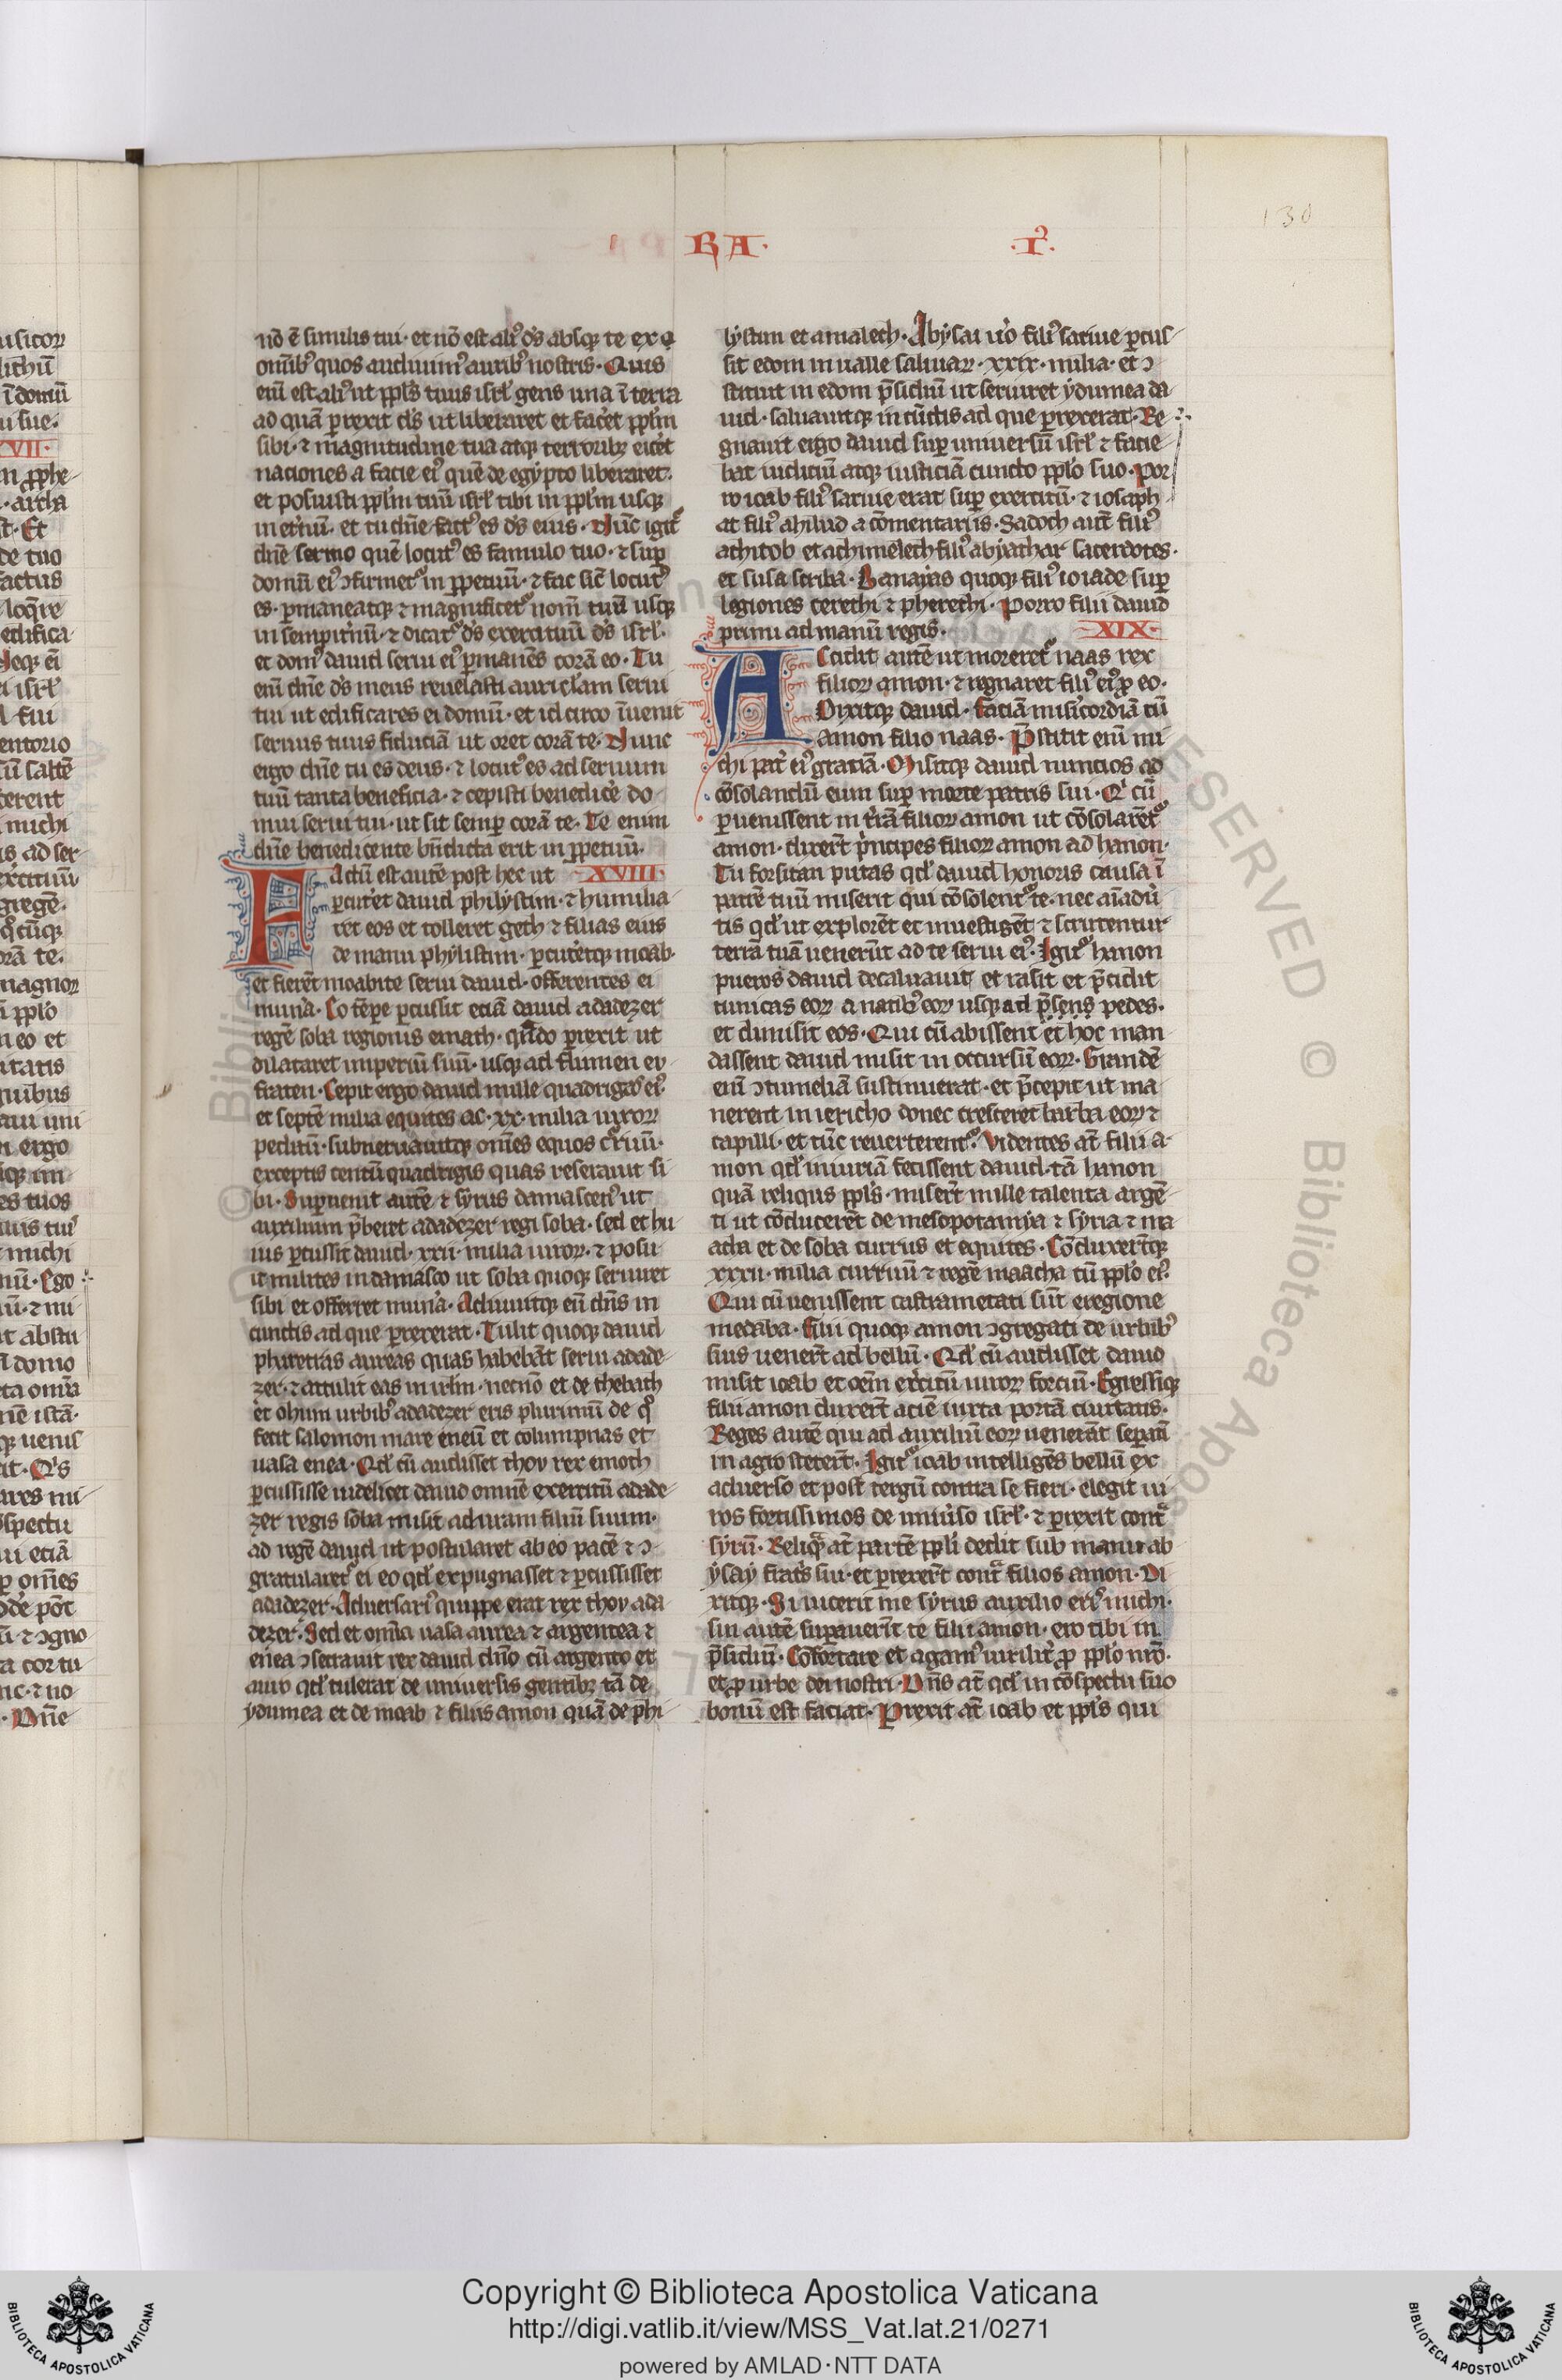 130
RA. .I.
nō ē similis tui· et nō est aliꝰ dꝰs absqꝫ te ex
omībꝰ quos audiuimꝰ auribꝰ nostris· Quis
enī est aliꝰ ut ppl̄s tuus isrl̄ gens una ī terra
ad quā ꝑrexit dꝰs ut liberaret et fac̄et ppl̄m
sibi· ⁊ magnitudine tua atqꝫ terroribꝫ eic̄et
nationes a facie eiꝰ quē de egypto liberaret·
et posuisti ppl̄m tuū isrl̄ tibi in ppl̄m usqꝫ
in et̄nū· et tu dn̄e factꝰ es dꝰs eius· Nūc igit᷑
dn̄e sermo quē locutꝰ es famulo tuo· ⁊ suꝑ
domū eiꝰ ɔfirmet᷑ in ꝑpetuū· ⁊ fac sic̄ locutꝰ
es· ꝑmaneatqꝫ ⁊ magnificet᷑ nom̄ tuū usqꝫ
in sempit̄nū· ⁊ dicat᷑ dꝰs exercituū dꝰs isrl̄·
et domꝰ dauid serui eiꝰ ꝑmanēs corā eo· Tu
enī dn̄e dꝰs meus reuelasti auricl̄am serui
tui ut edificares ei domū· et id circo īuenit
seruus tuus fiduciā ut oret corā te· Nunc
ergo dn̄e tu es deus· ⁊ locutꝰ es ad seruum
tuū tanta beneficia· ⁊ cepisti benedic̄e do-
mui serui tui· ut sit semꝑ corā te· Te enim
dn̄e benedicente bn̄dicta erit in ꝑpetuū·
Factū est autē post hec ut XVIII·
ꝑcut̄et dauid philystim· ⁊ humilia-
ret eos et tolleret geth ⁊ filias eius
de manu phylistim· ꝑcut̄etqꝫ moab·
et fierēt moabite serui dauid· offerentes ei
mun̄a· Eo tēpe ꝑcussit etiā dauid adadezer
regē soba regionis emath· qn̄do ꝑrexit ut
dilataret imperiū suū· usqꝫ ad flumen eu-
fraten· Cepit ergo dauid mille quadrigas eiꝰ·
et septē milia equites ac· xx· milia uiroꝝ
peditū· subneruauitqꝫ om̄es equos curruū·
exceptis centū quadrigis quas reseruauit si-
bi· Suꝑuenit autē ⁊ syrus damascenꝰ ut
auxilium p̄beret adadezer regi soba· sed et hu-
ius ꝑcussit dauid· xxii· milia uiroꝝ· ⁊ posu-
it milites in damasco ut soba quoqꝫ seruiret
sibi et offerret mun̄a· Adiuuitqꝫ eū dn̄s in
cunctis ad que ꝑrexerat· Tulit quoqꝫ dauid
pharetras aureas quas habebāt serui adade-
zer· ⁊ attulit eas in irlm̄· necnō et de thebath
et chum urbibꝰ adadezer eris plurimū de qͦ
fecit salomon mare eneū et columpnas et
uasa enea· Qd̄ cū audisset thou rex emath
ꝑcussisse uidelicet dauid omnē exercitū adade-
zer regis soba misit aduram filiū suum·
ad regē dauid ut postularet ab eo pacē ⁊ ɔ-
gratularet᷑ ei eo qd̄ expugnasset ⁊ ꝑcussisset
adadezer· Aduersariꝰ quippe erat rex thou ada-
dezer· Sed et om̄ia uasa aurea ⁊ argentea ⁊
enea ɔsecrauit rex dauid dn̄o cū argento et
auro qd̄ tulerat de uniuersis gentibꝫ tā de
ydumea et de moab ⁊ filiis amon quā de phi-
lystim et amalech· Abysai ūo filiꝰ saruie ꝑcus-
sit edom in ualle salinaꝝ· xxix· milia· et ɔ-
stituit in edom p̄sidiū ut seruiret ydumea da-
uid· saluauitqꝫ in cūctis ad que ꝑrexerat· Re-
gnauit ergo dauid suꝑ uniuersū isrl̄ ⁊ facie-
bat iudiciū atqꝫ iusticiā cuncto ppl̄o suo· Por-
ro ioab filiꝰ saruie erat suꝑ exercitū· ⁊ iosaph-
at filiꝰ ahilud a cōmentariis· Sadoch aut̄ filiꝰ
achitob et achimelech filiꝰ abyathar sacerdotes·
et susa scriba· Banayas quoqꝫ filiꝰ ioiade suꝑ
legiones cerethi ⁊ pherethi· Porro filii dauid
primi ad manū regis· XIX·
Accidit autē ut moreret᷑ naas rex
filioꝝ amon· ⁊ regnaret filiꝰ eiꝰ ꝓ eo·
Dixitqꝫ dauid· Faciā misīcordiā cū
amon filio naas· P̄stitit enī mi-
chi pat̄ eiꝰ gratiā· Misitqꝫ dauid nuncios ad
cōsolandū eum suꝑ morte patris sui· Qi cū
ꝑuenissent in t̄rā filioꝝ amon ut cōsolarēt᷑
amon· dixer̄t p̄ncipes filioꝝ amon ad hanon·
Tu forsitan putas qd̄ dauid honoris causa ī
patrē tuū miserit qui cōsolent᷑ te· nec aīadū-
tis qd̄ ut explorēt et inuestigēt ⁊ scrutentur
terrā tuā uenerūt ad te serui eiꝰ· Igit᷑ hanon
pueros dauid decaluauit et rasit et p̄cidit
tunicas eoꝝ a natibꝰ eoꝝ usqꝫ ad p̄sens pedes·
et dimisit eos· Qui cū abissent et hoc man-
dassent dauid misit in occursū eoꝝ· Grandē
enī ɔtumeliā sustinuerat· et p̄cepit ut ma-
nerent in iericho donec cresceret barba eoꝝ ⁊
capilli· et tūc reuerterent᷑· Videntes at̄ filii a-
mon qd̄ iniuriā fecissent dauid· tā hanon
quā reliquus ppl̄s· miser̄t mille talenta argē-
ti ut cōducerēt de mesopotamya ⁊ syria ⁊ ma-
acha et de soba currus et equites· Cōduxer̄tqꝫ
xxxii· milia curruū ⁊ regē maacha cū ppl̄o eiꝰ·
Qui cū uenissent castrametati sūt eregione
medaba· Filii quoqꝫ amon ɔgregati de urbibꝰ
suis uener̄t ad bellū· Qd̄ cū audisset dauid
misit ioab et oēm exc̄itū uiroꝝ fortiū· Egressiqꝫ
filii amon dixer̄t aciē iuxta portā ciuitatis·
Reges autē qui ad auxiliū eoꝝ uenerāt seꝑati
in agro steter̄t· Igit᷑ ioab intelligēs bellū ex
aduerso et post tergū contra se fieri· elegit ui-
ros fortissimos de uniūso isrl̄· ⁊ ꝑrexit contͣ
syrū· Reliqͣ at̄ partē ppl̄i dedit sub manu ab-
ysay frat̄s sui· et ꝑrexer̄t contͣ filios amon· Di-
xitqꝫ· Si uicerit me syrus auxilio erꝰ michi·
sin autē suꝑauer̄it te filii amon· ero tibi in
p̄sidiū· Cōfortare et agamꝰ uirilit̄ ꝓ ppl̄o nrō·
et ꝓ urbe dei nostri· Dn̄s at̄ qd̄ in cōspectu suo
bonū est faciat· Ꝑrexit at̄ ioab et ppl̄s qui
Copyright © Biblioteca Apostolica Vaticana
http://digi.vatlib.it/view/MSS_Vat.lat.21/0271
powered by AMLAD·NTT DATA
BIBLIOTECA APOSTOLICA VATICANA
BIBLIOTECA APOSTOLICA VATICANA